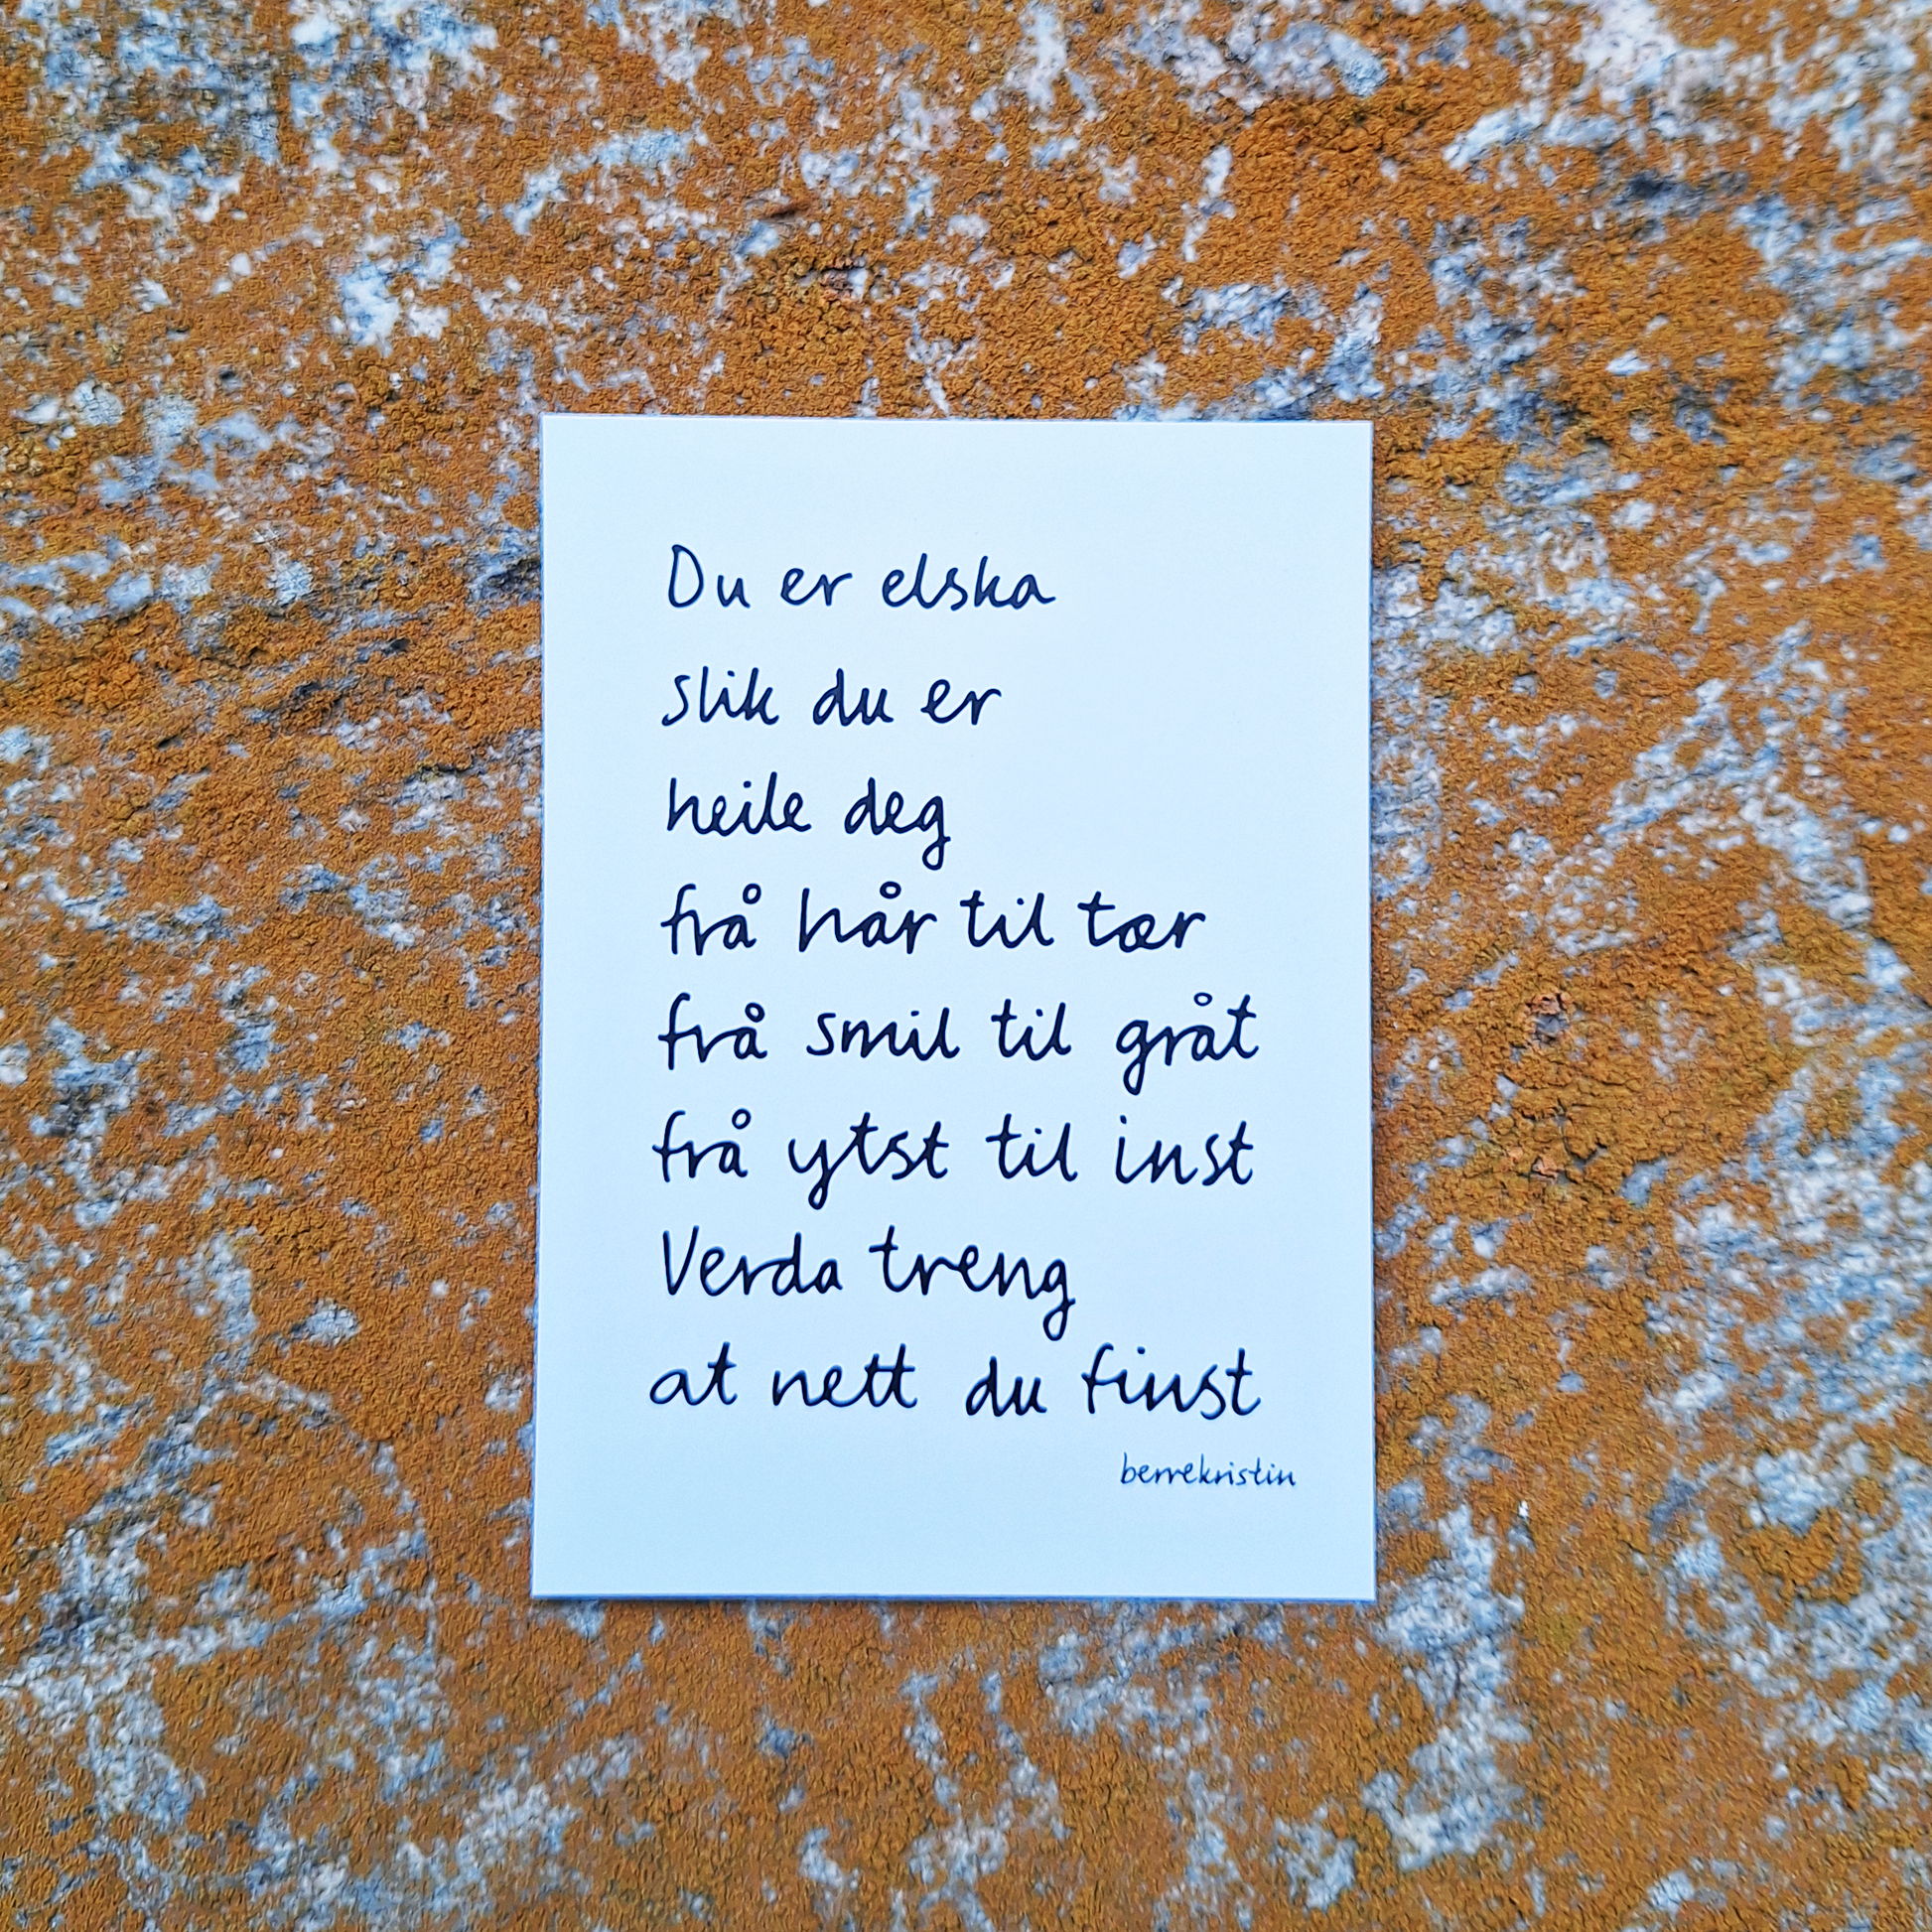 Du er elska
slik du er
heile deg
frå hår til tær
frå smil til gråt
frå ytst til inst
Verda treng
at nett du finst
berrekristin